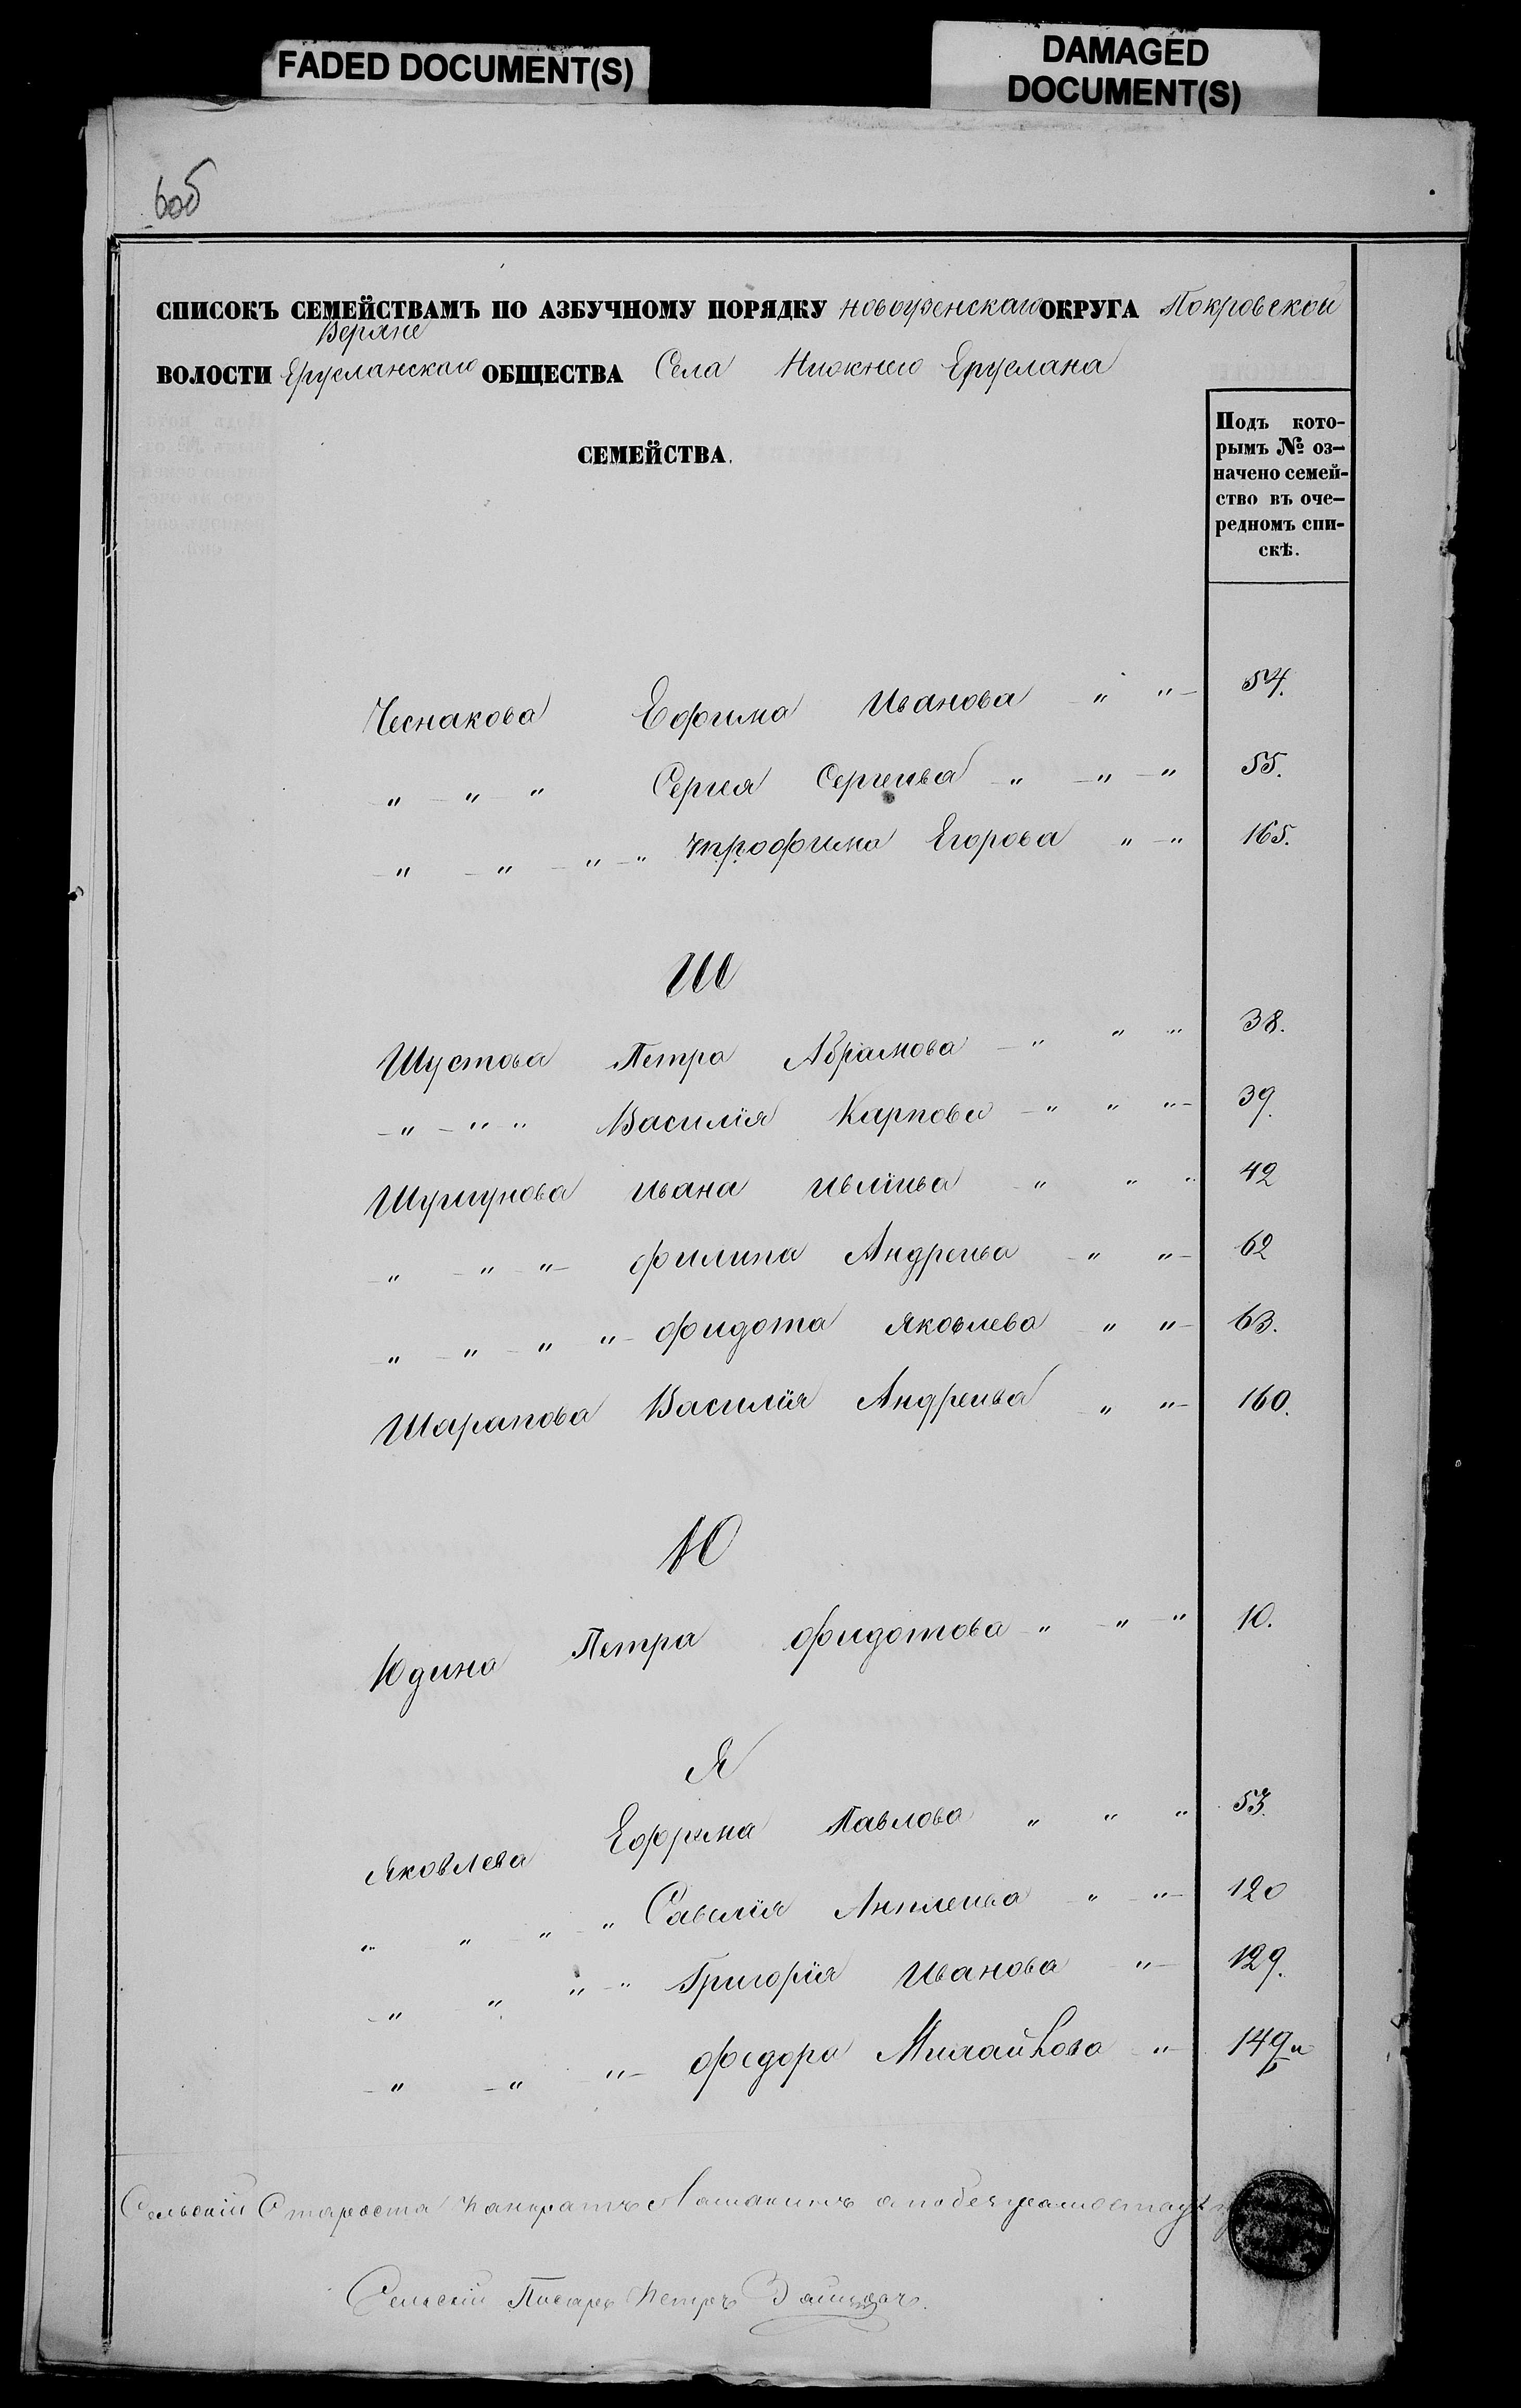 FADED DOCUMENT(S)
DAMAGED
DOCUMENT(S)
6об
СПИСОКЪ СЕМЕЙСТВАМЪ ПО АЗБУЧНОМУ ПОРЯДКУ Новоузенскаго ОКРУГА Покровской
Верхне
ВОЛОСТИ Ерусланскаго ОБЩЕСТВА Села Нижнего Еруслана
СЕМЕЙСТВА.
Подъ кото-
рымъ № оз-
начено семей-
ство въ оче-
редномъ спи-
скѣ.
Чеснакова Ефима Иванова " " 54.
" " " Сергея Сергеива " " " 55.
" " " " Трофима Егорова " " 165.
Ш
Шустова Петра Абрамова " " " 38.
" " " Василія Карпова " " " 39.
Шуршунова Ивана Ивлиева " " " 42
" " " Филипа Андреива " " 62
" " " " Фидота Яковлева " " 63.
Шарапова Василія Андреива " " 160.
Ю
Юдина Петра Фидотова " " " 10.
Я
Яковлева Ефрима Павлова " " " 53.
" " " " Савелія Антипева " " 120
" " " " Григорія Иванова " " 129.
" " " Федора Михайлова " 149
Сельскій Староста Панкратъ
Сельскій Писарь Петръ